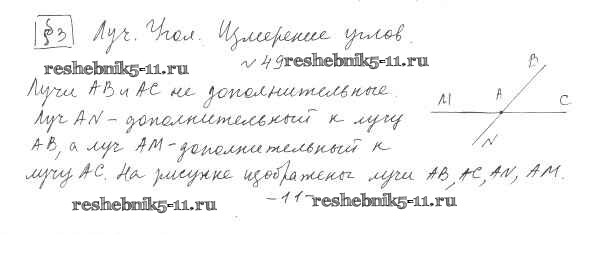 §3 Луч. Угол. Измерение углов.
reshebnik5-11.ru
№49 reshebnik5-11.ru
Лучи AB и AC не дополнительные.
Луч AN - дополнительный к лучу
AB, а луч AM - дополнительный к
лучу AC. На рисунке изображены лучи AB, AC, AN, AM.
B
M A C
N
reshebnik5-11.ru
-11- reshebnik5-11.ru